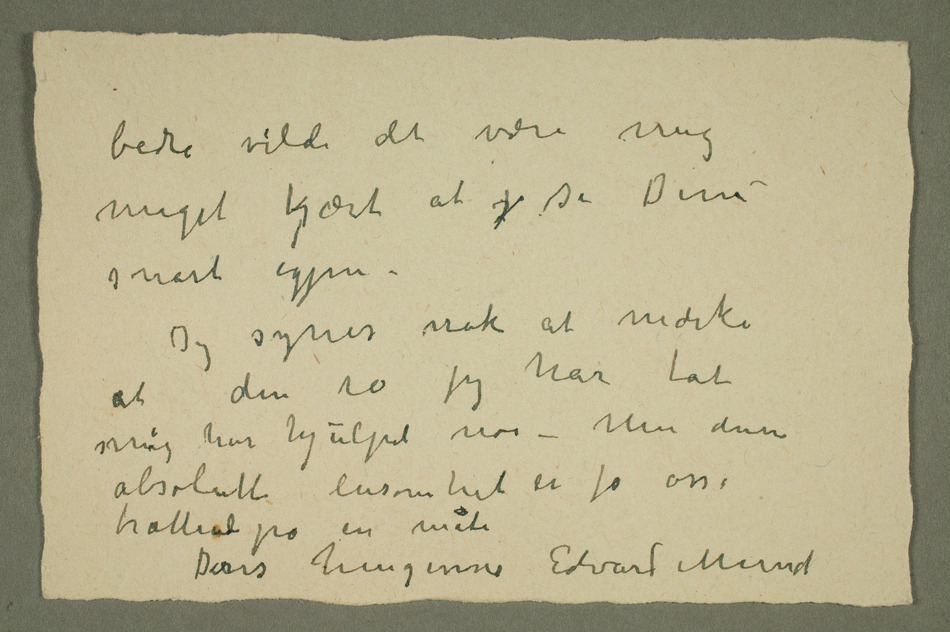 bedre vilde det være mig
meget kjært at se Dem
snart igjen –
Jeg synes nok at mærke
at den ro jeg har tat
mig har hjulpet noe – Men denne
absolutte ensomhet er jo osså
trættende på en måte
Deres hengivne Edvard Munch